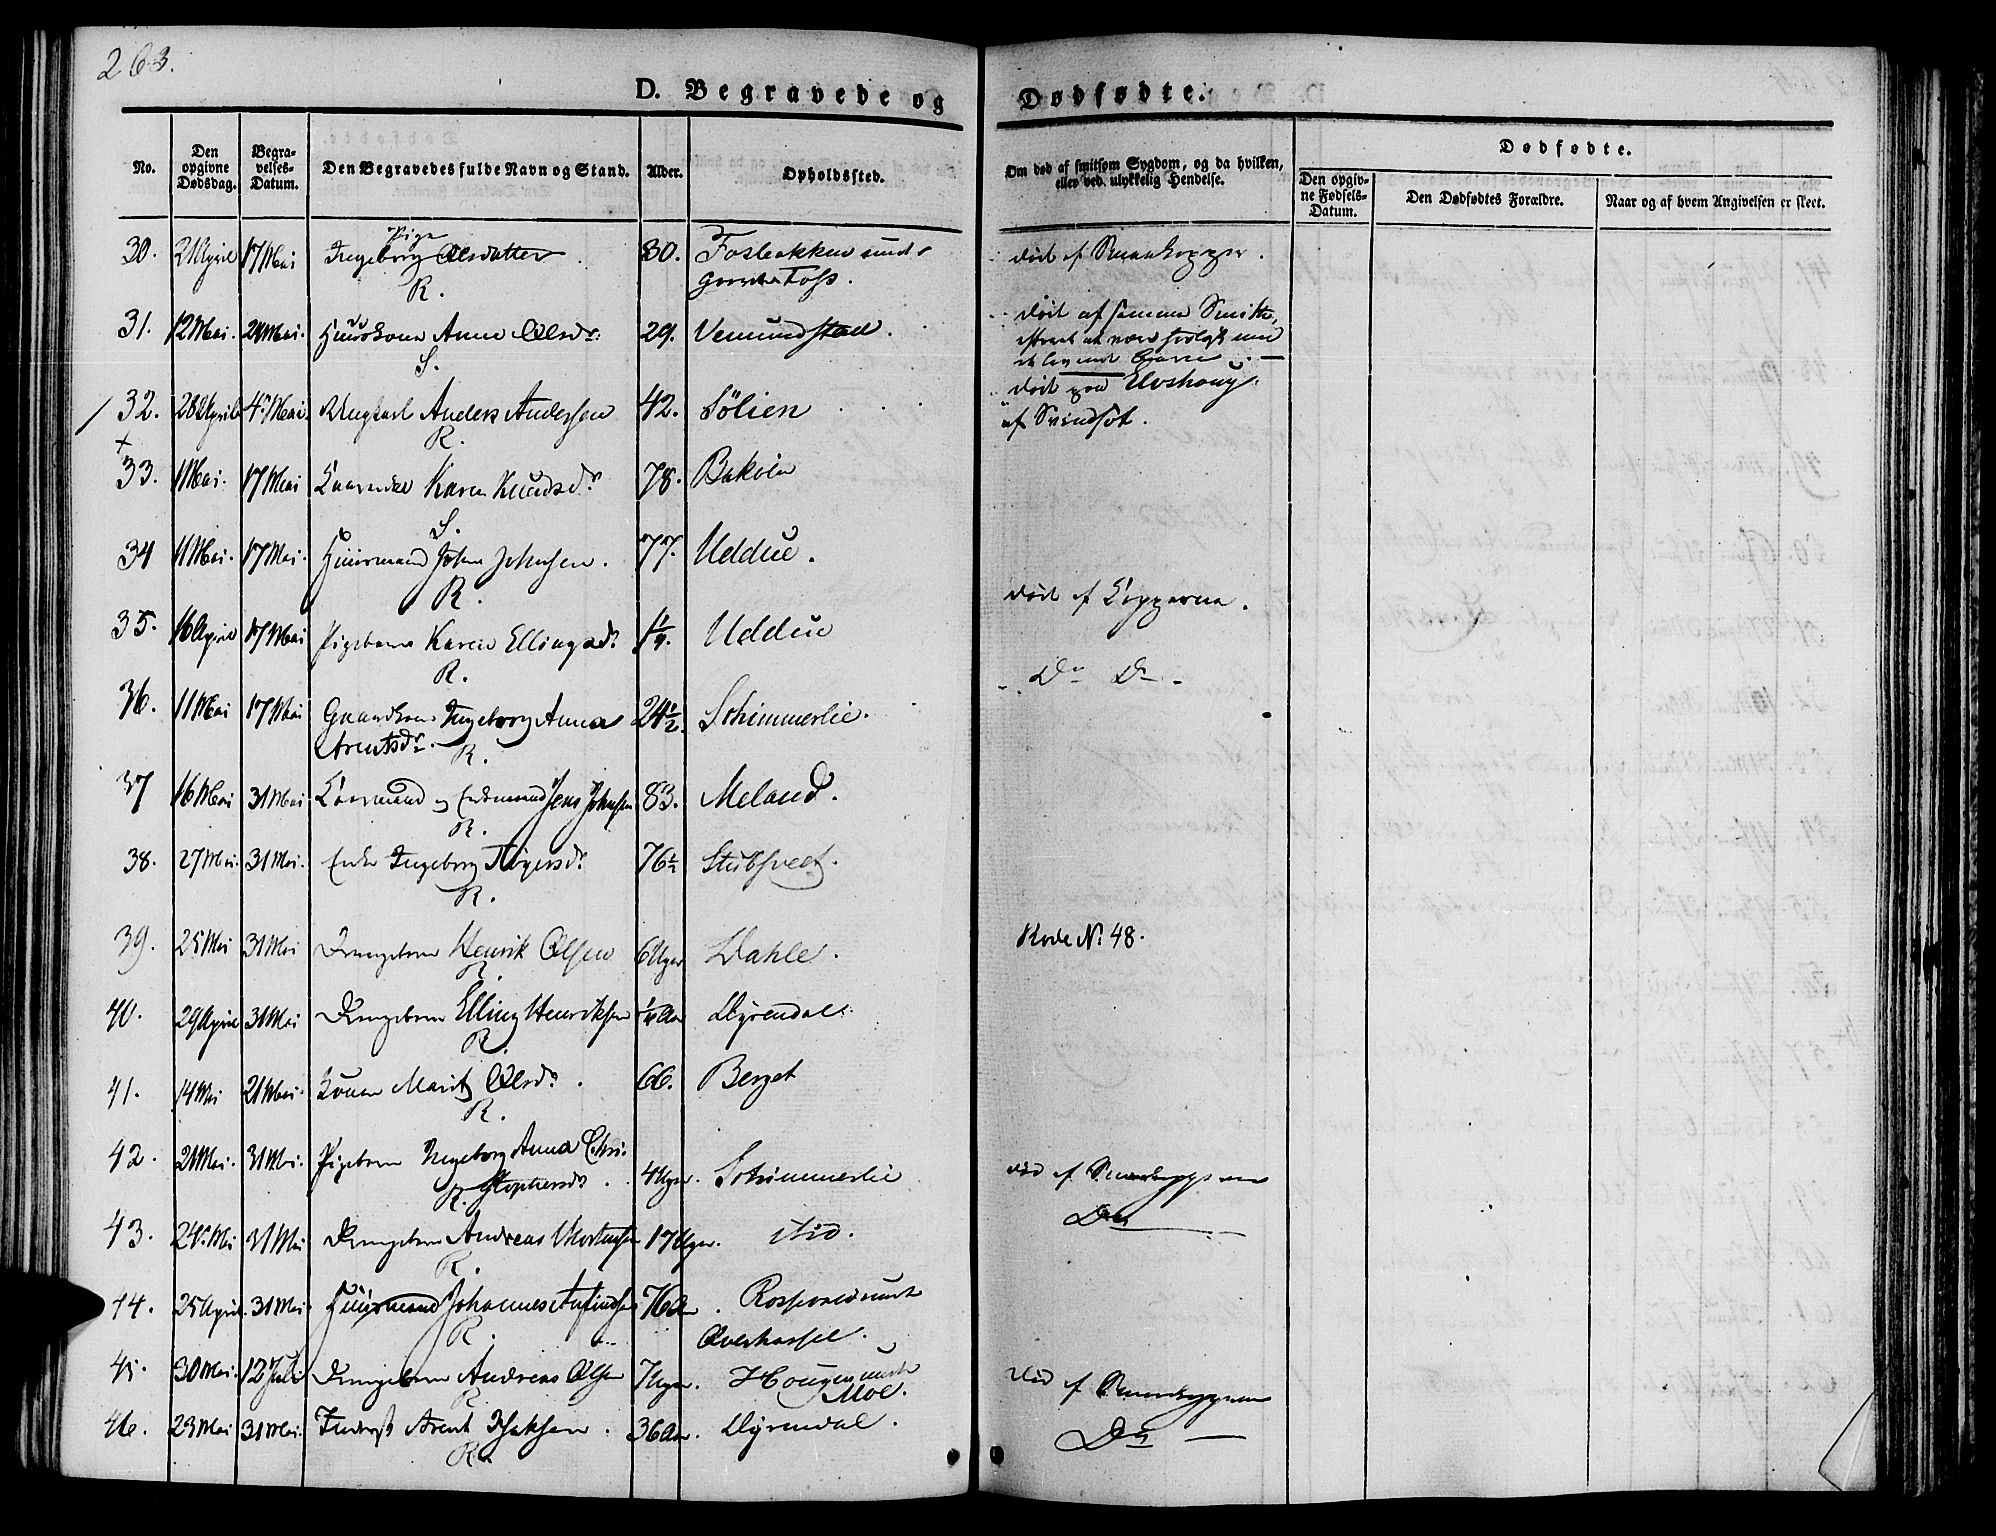 263.
D. Begravede og Dødfødte.
No.
Den opgivne Dødsdag.
Begravelses-Datum.
Den Begravedes fulde Navn og Stand.
Alder.
Opholdssted.
Om død af smitsom Sygdom, og da hvilken, eller ved ulykkelig Hendelse.
Dødfødte.
Den opgivne Fødsels-Datum.
Den Dødfødtes Forældre.
Naar og af hvem Angivelsen er skeet.
Pige
30. 21 April 17 Mai Ingeborg Olsdatter 30. Fosbakken
R. Foss. død af Smaakopper.
31. 12 Mai. 24 Mai. Huuskone Anne Olsdr. 29. Vemundstad. død af samme
S.
32. 28 April 4 Mai Ungkarl Anders Andersen 42. Sølien død paa
R. af Svindsot.
33. 11 Mai. 17 Mai Karen Knudsdr 78. Bakøien
S.
34 11 Mai. 17 Mai. Huusmand John Johnsen. 77. Uddue.
R. død af Kopperne.
35. 16 April 17 Mai Pigebarn Karen Ellingsdr 1¼. Uddue
R. Do Do -
36. 11 Mai 17 Mai Gaardkone Ingeborg Anna 24½. Schimmerlie.
Arentsdr. R.
37 16 Mai 31 Mai og Enkemand Jens Johnsen 83. Meland.
R.
38. 27 Mai. 31 Mai. Enke Ingeborg 76½ Stubsveet.
R.
39. 25 Mai 31 Mai Drengebarn Henrik Olsen 6 Uger Dahle. No. 48.
R.
40. 29 April 31 Mai Drengebarn Elling Henriksen Dyrendal.
R.
41. 14 Mai 21 Mai. Marit Olsdr. 66. Berget
R.
42. 21 Mai. 31 Mai. Pigebarn Ingeborg Anna Chri-
R. stophersdr. 4 Uger. Schimmerlie død af Smaakopperne
43. 24 Mai 31 Mai Drengebarn Andreas Mortensen 17 Uger. ibid. Do
R.
44. 25 April. 31 Mai. Huusmand Johannes 76 Aar.
R. Øverkassel.
45. 30 Mai. 12 Juli Drengebarn Andreas Olsen 7 Uger. Hougen under død af Smaakopperne
R. Moe.
46. 23 Mai 31 Mai. Inderst Arent Isaksen. 36 Aar Dyrendal. Do
R.